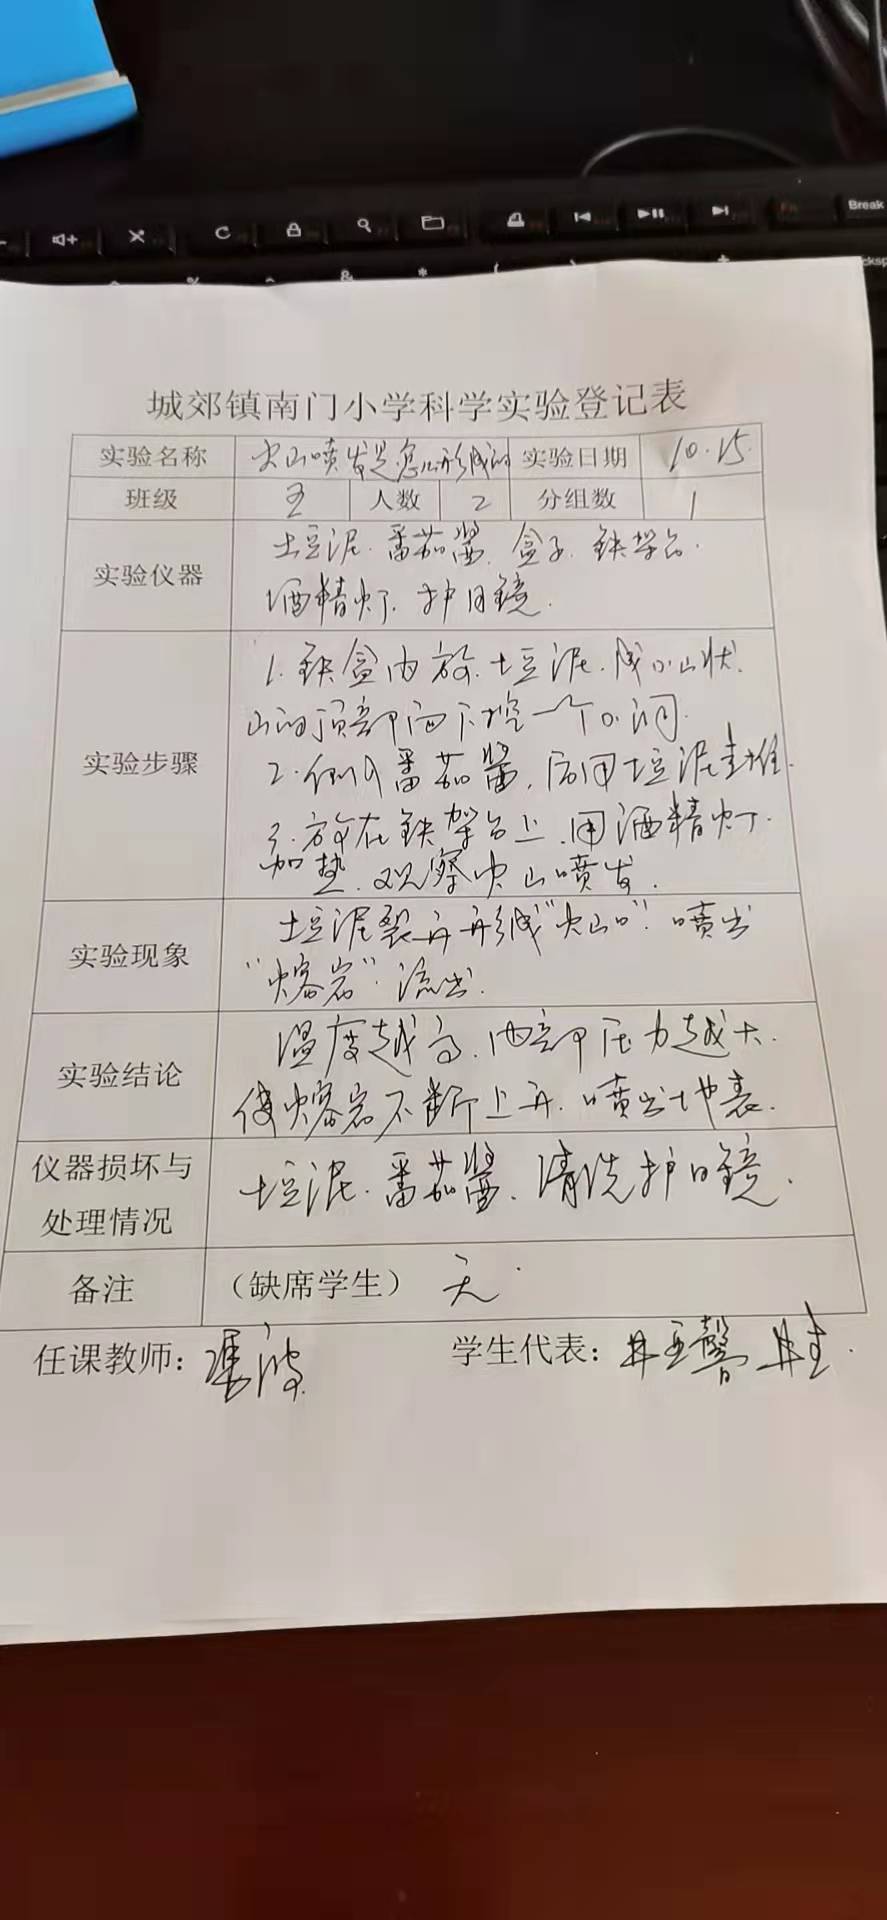 Break
城郊镇南门小学科学实验登记表
实验名称 火山喷发是怎么形成的 实验日期 10.15.
班级 五 人数 2 分组数 1
实验仪器 土豆泥.番茄酱.盒子.铁架台.
酒精灯.护目镜.
实验步骤 1.铁盒内放.土豆泥.成小山状.
山的顶部向下挖一个小洞.
2.倒入番茄酱,后用土豆泥封堆.
3.放在铁架台上.用酒精灯.
加热.观察火山喷发.
实验现象 土豆泥裂开形成“火山口”.喷出
“熔岩”流出.
实验结论 温度越高.内部压力越大.
使熔岩不断上升.喷出地表.
仪器损坏与
处理情况 土豆泥.番茄酱.清洗护目镜.
备注 （缺席学生） 无.
任课教师： 学生代表：